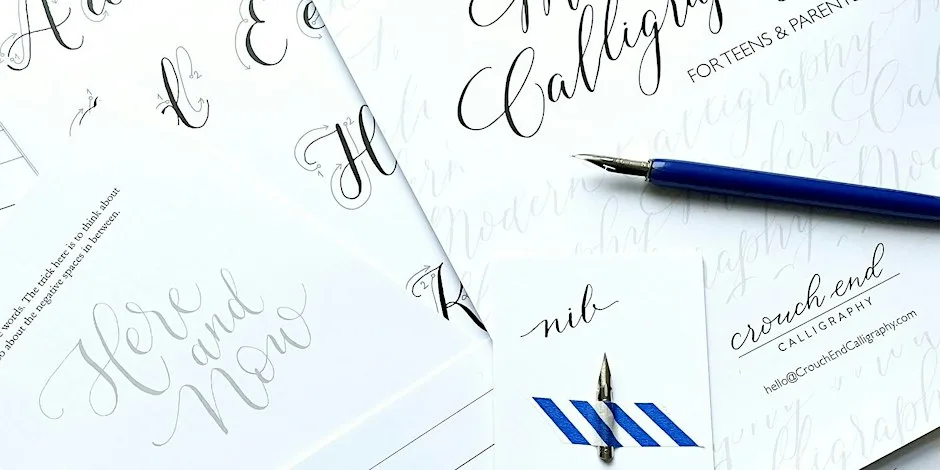 A a
E e
H
K
e words. The trick here is to think about
o about the negative spaces in between.
Here
and
Now
Calligraphy
FOR TEENS & PARENTS
Modern Calligraphy
nib
crouch end
CALLIGRAPHY
hello@CrouchEndCalligraphy.com